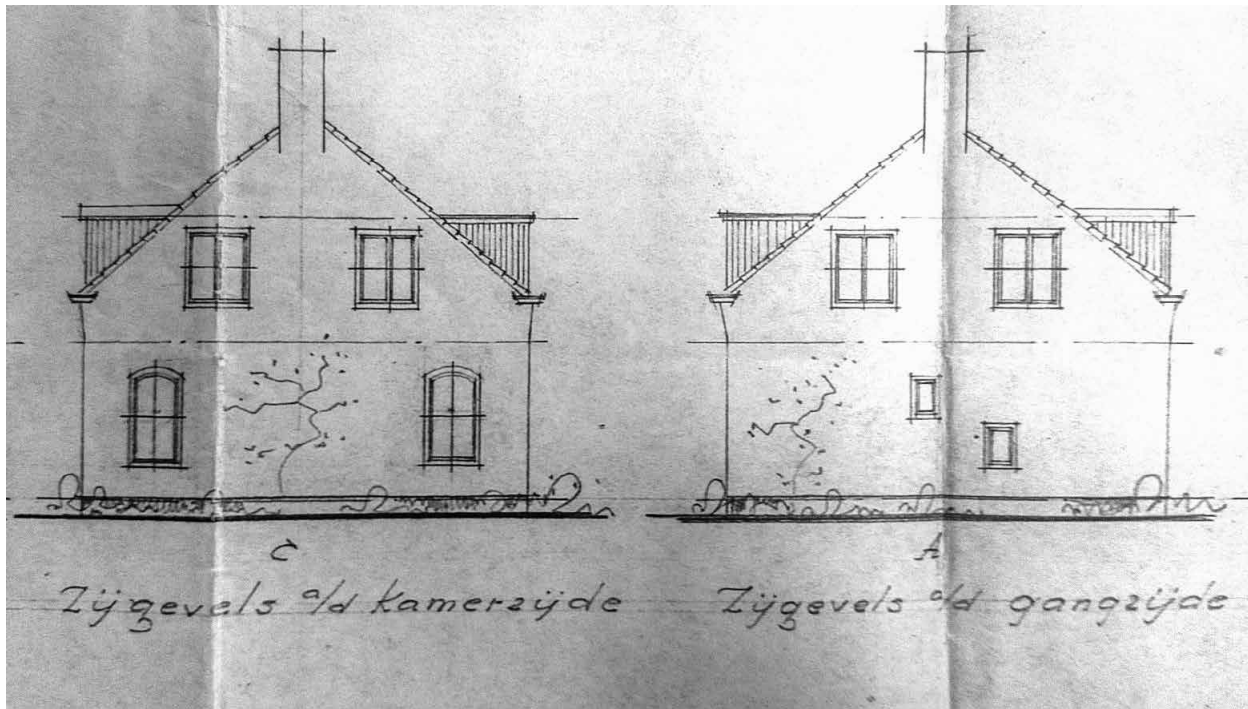 C
Zijgevels a/d kamerzijde
A
Zijgevels a/d gangzijde